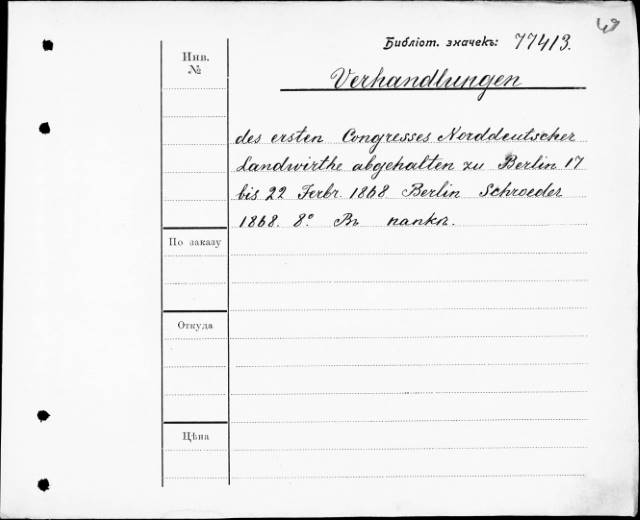 49
Библіот. значекъ: 77413.
Инв.
№
Verhandlungen
des ersten Congresses Norddeutscher
Landwirthe abgehalten zu Berlin 17
bis 22 Ferbr. 1868 Berlin Schroeder
1868. 8° Въ папкѣ.
По заказу
Откуда
Цѣна